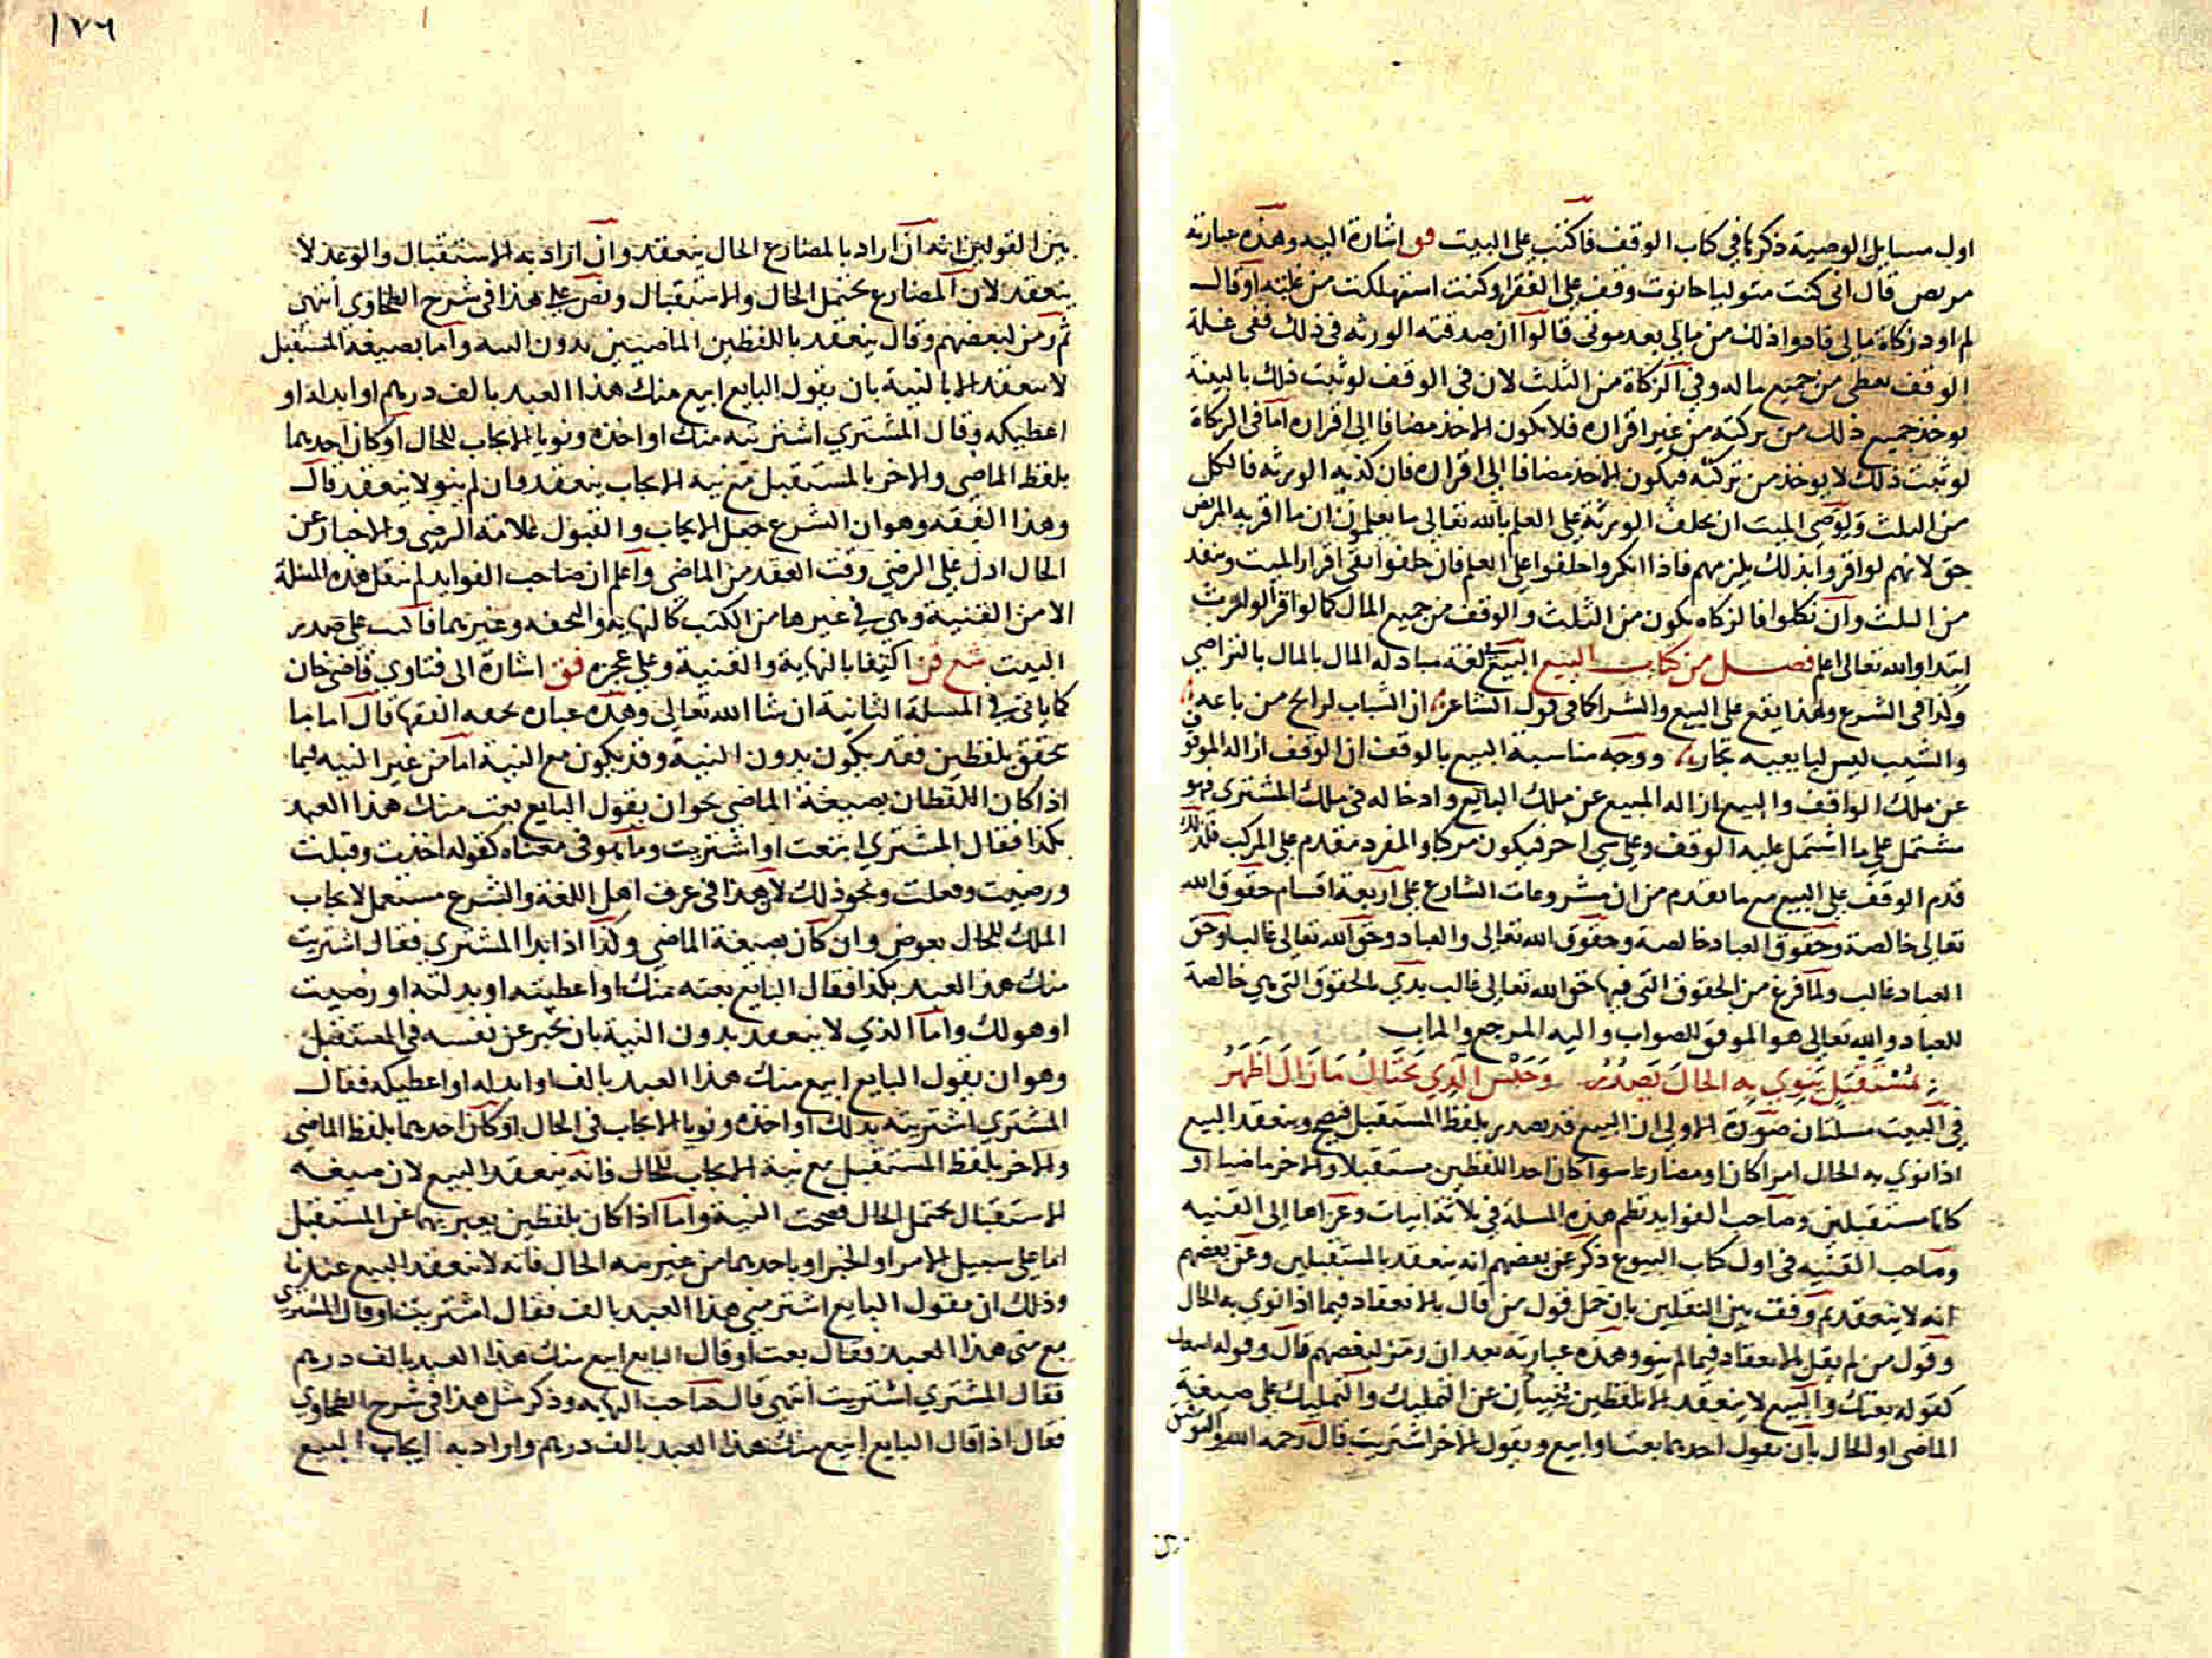 اول مسايل الوصية ذكرها في كتاب الوقف فاكتب على البيت فق اشارة اليه وهذه عبارته
مريض قال انى كنت متوليا حانوت وقف على الفقرا وكنت استهلكت من غلته او قال
لم اود زكاة مالى فادوا ذلك من مالى بعد موتى قالوا ان صدقته الورثه في ذلك ففى غلة
الوقف يعطى من جميع ماله وفي الزكاة من الثلث لان في الوقف لو ثبت ذلك بالبينة
يوخذ جميع ذلك من تركته من غير اقراره فلا يكون الاخذ مضافا الى اقراره اما في الزكاة
لو ثبت ذلك لا يوخذ من تركته فيكون الاخذ مضافا الى اقراره فان كذبه الورثه فالكل
من الثلث ولوصى الميت ان يحلف الورثة على العلم بالله تعالى ما يعلمون ان ما اقر به المريض
حق لانهم لو اقروا بذلك يلزمهم فاذا انكروا حلفوا على العلم فان حلفوا بقى اقرار الميت وينفذ
من الثلث وان نكلوا فالزكاه يكون من الثلث والوقف من جميع المال كما لو اقر الوارث
ابتدا والله تعالى اعلم فصل من كتاب البيع البيع لغة مبادله المال بالمال بالتراضى
وكذا فى الشرع ولهذا يقع على البيع والشرا كما فى قول الشاعر ان الشباب لرابح من باعه
والشيب ليس لبايعيه تجار ووجه مناسبة البيع بالوقف ان الوقف ازاله الموقوف
عن ملك الواقف والبيع ازاله المبيع عن ملك البايع وادخاله فى ملك المشترى فهو
مشتمل على ما اشتمل عليه الوقف وعلى شى اخر فيكون مركبا والمفرد مقدم على المركب فلذلك
قدم الوقف على البيع مع ما تقدم من ان مشروعات الشارع على اربعة اقسام حقوق الله
تعالى خالصة وحقوق العباد خالصة وحقوق الله تعالى والعباد وحق الله تعالى غالب او حق
العباد غالب ولما فرغ من الحقوق التى فيها حق الله تعالى غالب بدي بالحقوق التى هي خالصة
للعباد والله تعالى هو الموفق للصواب واليه المرجع والماب
بمستقبل ينوي به الحال يصدر وحبس الذي يحتال ما زال اظهر
في البيت مسلتان صورة الاولى ان البيع قد يصدر بلفظ المستقبل فيصح وينعقد البيع
اذا نوي به الحال امرا كان او مضارعا سوا كان احد اللفظين مستقبلا والاخر ماضيا او
كانا مستقبلين وصاحب الفوايد نظم هذه المسلة في ثلاثة ابيات وعزاها الى القنيه
وصاحب القنيه فى اول كتاب البيوع ذكر عن بعضهم انه ينعقد بالمستقبلين وعن بعضهم
انه لا ينعقد ثم وفق بين النقلين بان حمل قول من قال بالانعقاد فيما اذا نوي به الحال
وقول من لم يقل بالانعقاد فيما لم ينو وهذه عبارته بعد ان رمز لبعضهم قال وقوله
كقوله بعتك والبيع لا ينعقد الا بلفظين ينبيان عن التمليك والتمليك على صيغة
الماضى او الحال بان يقول احدهما بعت او ابيع ويقول الاخر اشتريت قال رحمه الله والتوفيق
١٧٦
بين القولين انه ان اراد بالمضارع الحال ينعقد وان اراد به الاستقبال والوعد لا
ينعقد لان المضارع يحتمل الحال والاستقبال ونص على هذا فى شرح الطحاوي انتهى
ثم رمز لبعضهم وقال ينعقد باللفظين الماضيين بدون النيه واما بصيغة المستقبل
لا ينعقد الا بالنية بان يقول البايع ابيع منك هذا العبد بالف درهم او ابدله او
اعطيكه وقال المشتري اشتريه منك او اخذه ونويا الايجاب للحال او كان احدهما
بلفظ الماضى والاخر بالمستقبل مع نيه الايجاب ينعقد وان لم ينو لا ينعقد قال
وهذا الفقه وهو ان الشرع جعل الايجاب والقبول علامة الرضى والاخبار عن
الحال ادل على الرضى وقت العقد من الماضى واعلم ان صاحب الفوايد لم ينقل هذه المسلة
الا من القنية وهى في غيرها من الكتب كالنهاية والتحفه وغيرهما فاكتب على صدر
البيت شع قن اكتفا بالنهاية والقنية وعلى عجزه فق اشارة الى فتاوي قاضى خان
كما ياتى في المسلة الثانية ان شا الله تعالى وهذه عباره تحفه الفقها قال اما ما
تحقق بلفظين فقد يكون بدون النية وقد يكون مع النية اما من غير النيه فيما
اذا كان اللفظان بصيغة الماضى نحو ان يقول البايع بعت منك هذا العبد
بكذا فقال المشتري ابتعت او اشتريت وما هو فى معناه كقوله اخذت وقبلت
ورضيت وفعلت ونحو ذلك لان هذا فى عرف اهل اللغة والشرع مستعمل لايجاب
الملك للحال بعوض وان كان بصيغة الماضى وكذا اذا بدا المشترى فقال اشتريت
منك هذا العبد بكذا فقال البايع بعته منك او اعطيته او بدلته او رضيت
او هو لك واما الذي لا ينعقد بدون النية بان يخبر عن نفسه فى المستقبل
وهو ان يقول البايع ابيع منك هذا العبد بالف او ابدله او اعطيكه فقال
المشتري اشتريته بذلك او اخذه ونويا الايجاب فى الحال او كان احدهما بلفظ الماضى
والاخر بلفظ المستقبل مع نية الايجاب للحال فانه ينعقد البيع لان صيغه
الاستقبال يحتمل الحال فصحت النية واما اذا كان بلفظين يعبر بهما عن المستقبل
اما على سبيل الامر او الخبر او باحدهما من غير نيه الحال فانه لا ينعقد البيع عندنا
وذلك ان يقول البايع اشتر منى هذا العبد بالف فقال اشتريت او قال المشتري
بع منى هذا العبد فقال بعت او قال البايع ابيع منك هذا العبد بالف درهم
فقال المشترى اشتريت انتهى قال صاحب النهايه وذكر مثل هذا فى شرح الطحاوي
فقال اذا قال البايع ابيع منك هذا العبد بالف درهم واراد به ايجاب البيع